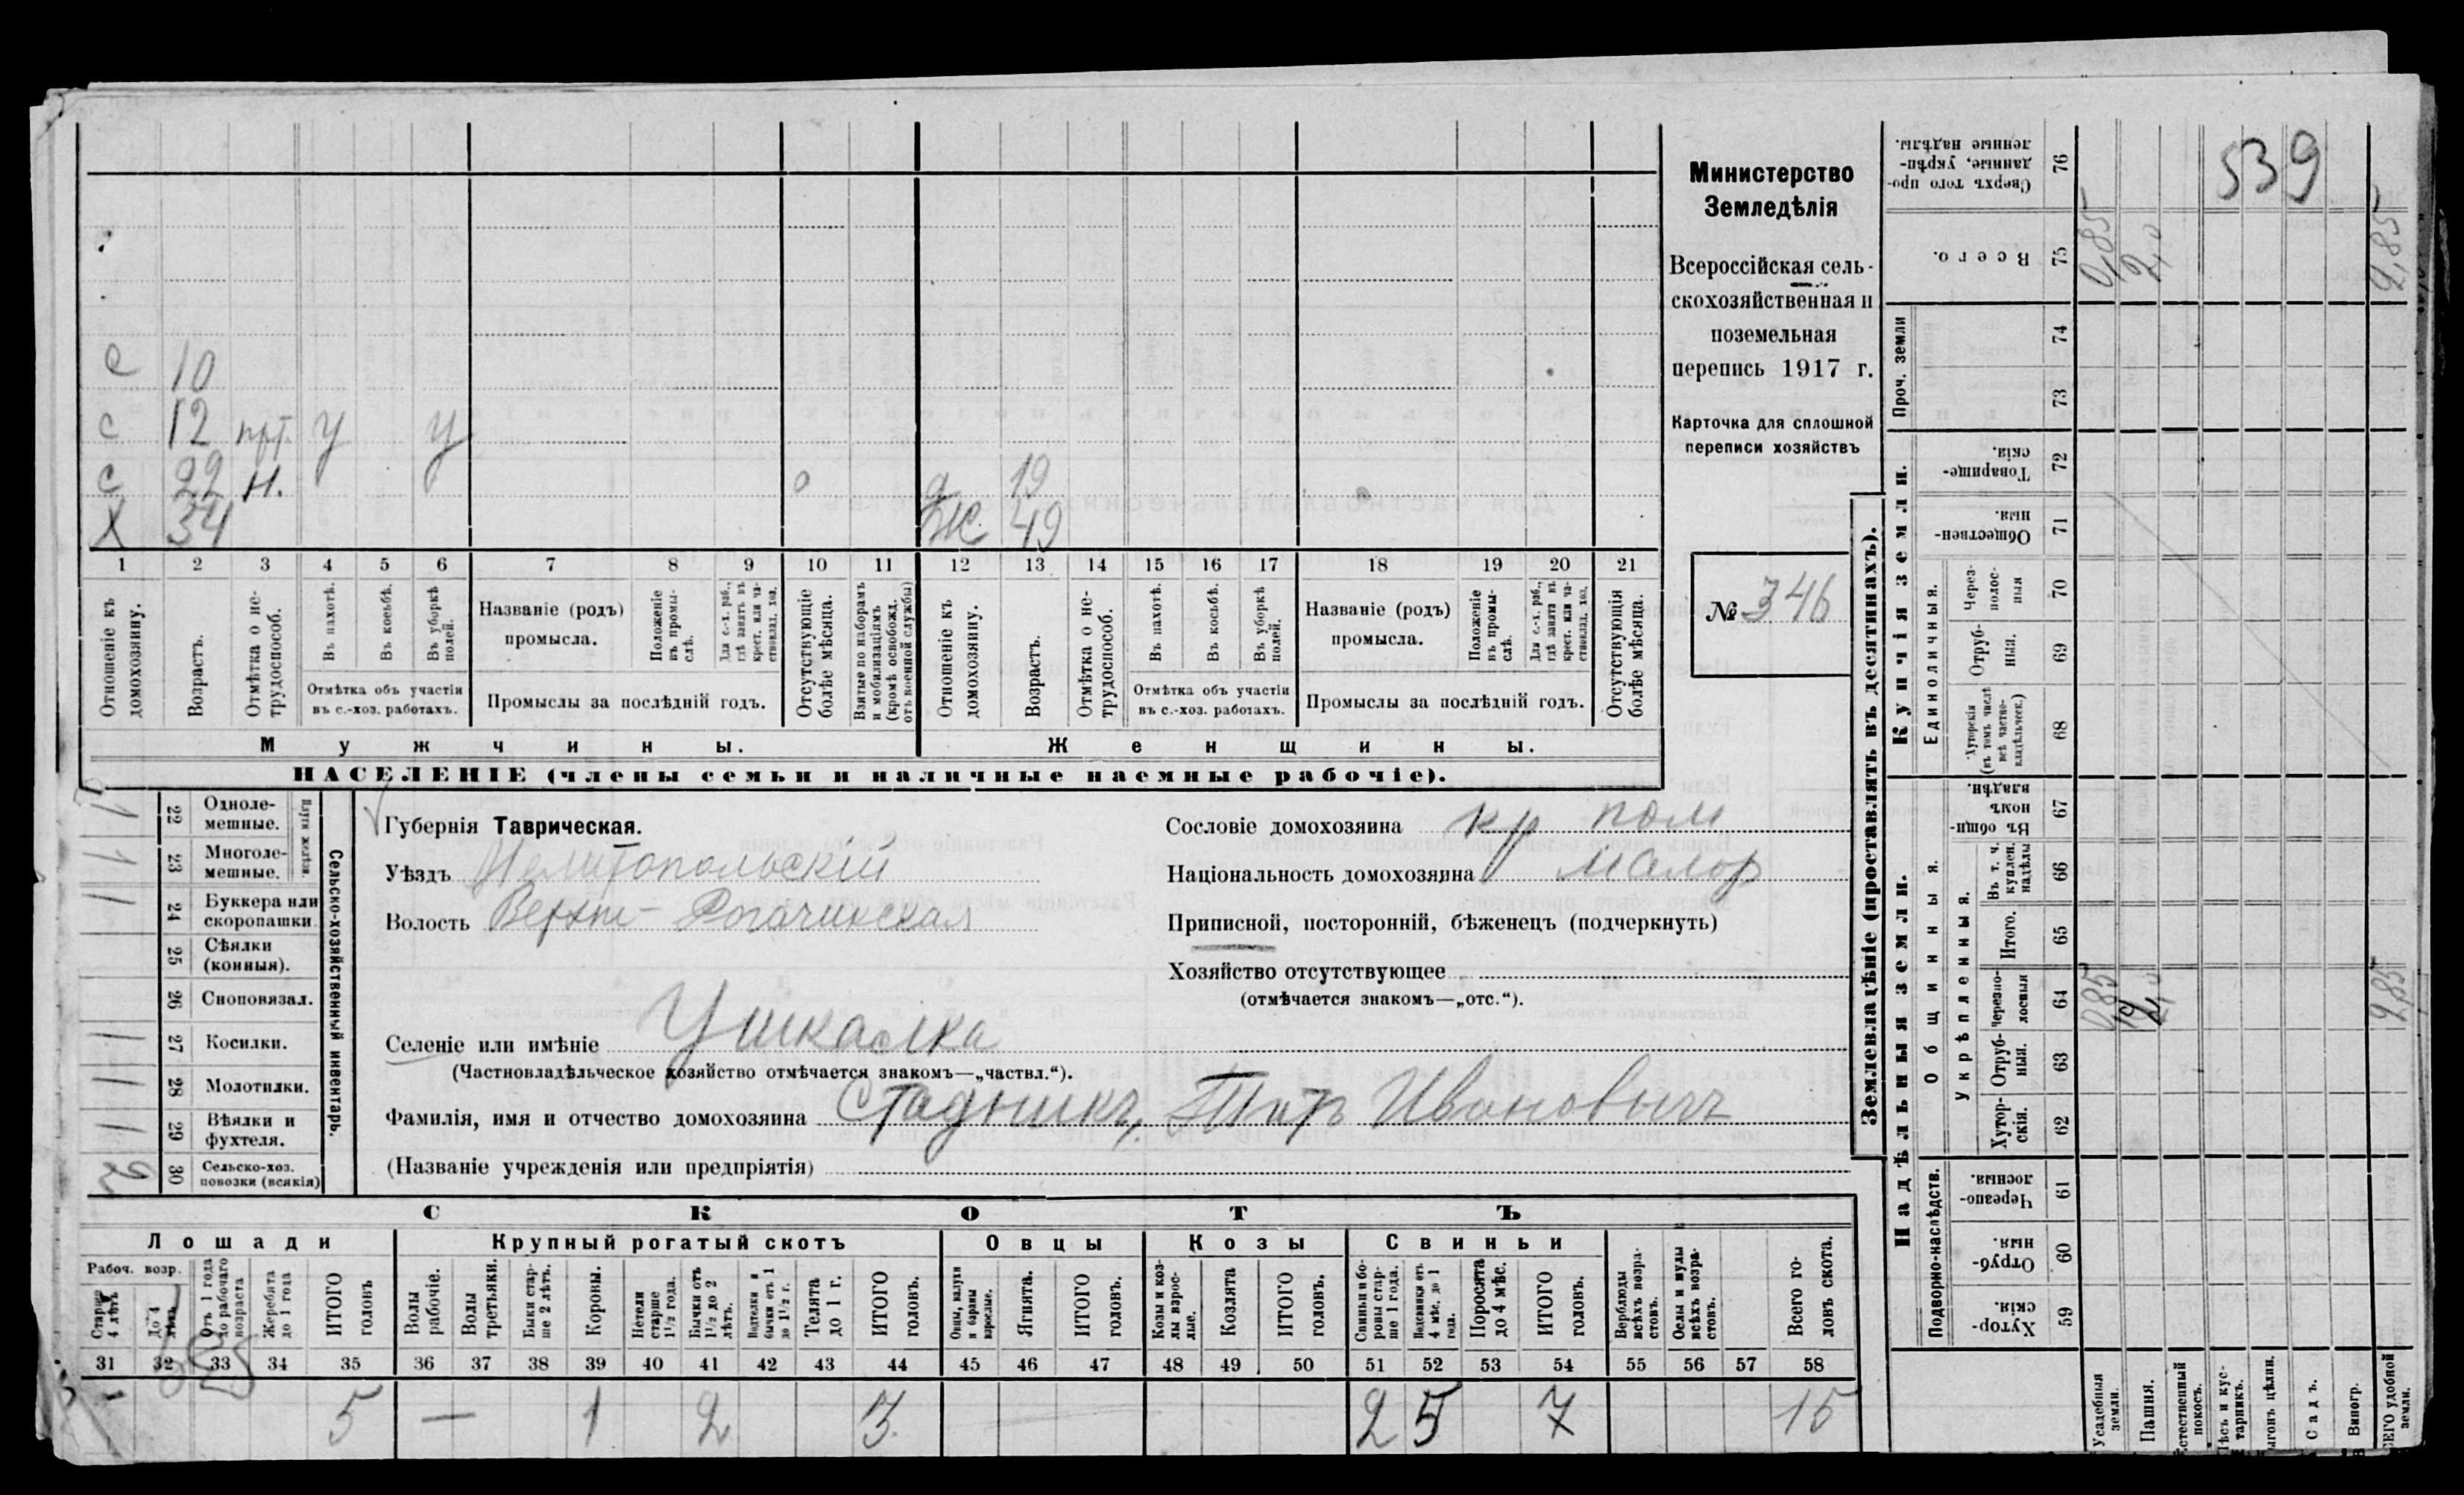 539
Министерство
Земледѣлія
Всероссійская сель-
скохозяйственная и
поземельная
перепись 1917 г.
Карточка для сплошной
переписи хозяйствъ
№ 346
с 10
с 12 прт. у у
с 22 н. о д 19
Х 34 Ж 49
1 2 3 4 5 6 7 8 9 10 11 12 13 14 15 16 17 18 19 20 21
Отношеніе къ домохозяину.
Возрастъ.
Отмѣтка о не-трудоспособ.
Въ пахотѣ.
Въ косьбѣ.
Въ уборкѣ полей.
Отмѣтка объ участіи
въ с.-хоз. работахъ.
Названіе (родъ)
промысла.
Положеніе въ промы-слѣ.
Для с.-х. раб., гдѣ занятъ въ крест. или ча-стновлад. хоз.
Промыслы за послѣдній годъ.
Отсутствующіе болѣе мѣсяца.
Взятые по наборамъ и мобилизаціямъ (кромѣ освобожд. отъ военной службы)
Отношеніе къ домохозяину.
Возрастъ.
Отмѣтка о не-трудоспособ.
Въ пахотѣ.
Въ косьбѣ.
Въ уборкѣ полей.
Отмѣтка объ участіи
въ с.-хоз. работахъ.
Названіе (родъ)
промысла.
Положеніе въ промы-слѣ.
Для с.-х. раб., гдѣ занята въ крест. или ча-стновлад. хоз.
Промыслы за послѣдній годъ.
Отсутствующія болѣе мѣсяца.
Мужчины.
Женщины.
НАСЕЛЕНІЕ (члены семьи и наличные наемные рабочіе).
Сельско-хозяйственный инвентарь.
Плуги желѣзн.
1 22 Одноле-мешные.
1 23 Многоле-мешные.
1 24 Буккера или скоропашки.
25 Сѣялки (конныя).
26 Сноповязал.
1 27 Косилки.
1 28 Молотилки.
1 29 Вѣялки и фухтеля.
2 30 Сельско-хоз. повозки (всякія)
Губернія Таврическая.
Уѣздъ Мелитопольскій
Волость Верхне-Рогачинская
Сословіе домохозяина кр
Національность домохозяина малор
Приписной, посторонній, бѣженецъ (подчеркнуть)
Хозяйство отсутствующее
(отмѣчается знакомъ—„отс.“).
Селеніе или имѣніе Ушкалка
(Частновладѣльческое хозяйство отмѣчается знакомъ—„частвл.“).
Фамилія, имя и отчество домохозяина Стадникъ, Ивановичъ
(Названіе учрежденія или предпріятія)
СКОТЪ
Лошади
Крупный рогатый скотъ
Овцы
Козы
Свиньи
Рабоч. возр.
Старше 4 лѣтъ
До 4 лѣтъ
Отъ 1 года до рабочаго возраста
Жеребята до 1 года
ИТОГО головъ
Волы рабочіе.
Волы третьяки.
Быки стар-ше 2 лѣтъ.
Коровы.
Нетели старше 1½ года.
Бычки отъ 1½ до 2 лѣтъ.
Телки и бычки отъ 1 до 1½ г.
Телята до 1 г.
ИТОГО головъ.
Овцы, валухи и бараны взрослые.
Ягнята.
ИТОГО головъ.
Козы и коз-лы взрос-лые.
Козлята
ИТОГО головъ.
Свиньи и бо-ровы стар-ше 1 года.
Подсвинки отъ 4 мѣс. до 1 года.
Поросята до 4 мѣс.
ИТОГО головъ.
Верблюды всѣхъ возра-стовъ.
Ослы и мулы всѣхъ возра-стовъ.
Всего го-ловъ скота.
31 32 33 34 35 36 37 38 39 40 41 42 43 44 45 46 47 48 49 50 51 52 53 54 55 56 57 58
5 — 1 2 3 2 5 7 15
Землевладѣніе (проставлять въ десятинахъ).
Надѣльныя земли.
Купчія земли.
Проч. земли
Подворно-наслѣдств.
Общинныя.
Укрѣпленныя.
Единоличныя.
Сверхъ того про-данные, укрѣп-ленные надѣлы. 76
Всего. 75 0,85 2,0 2,85
74
73
Товарище-скія. 72
Обществен-ныя. 71
Через-полос-ныя 70
Отруб-ныя. 69
Хуторскія (въ томъ числѣ всѣ частно-владѣльческ.) 68
Въ общи-номъ владѣн. 67
Въ т. ч. куплен. надѣлы 66
Итого. 65
Черезпо-лосныя 64 0,85 2,0 2,85
Отруб-ныя. 63
Хутор-скія. 62
Черезпо-лосныя. 61
Отруб-ныя. 60
Хутор-скія. 59
Усадебныя земли.
Пашня.
Естественный покосъ.
Лѣсъ и кус-тарникъ.
Выгонъ цѣлин.
Садъ.
Виногр.
ВСЕГО удобной земли.